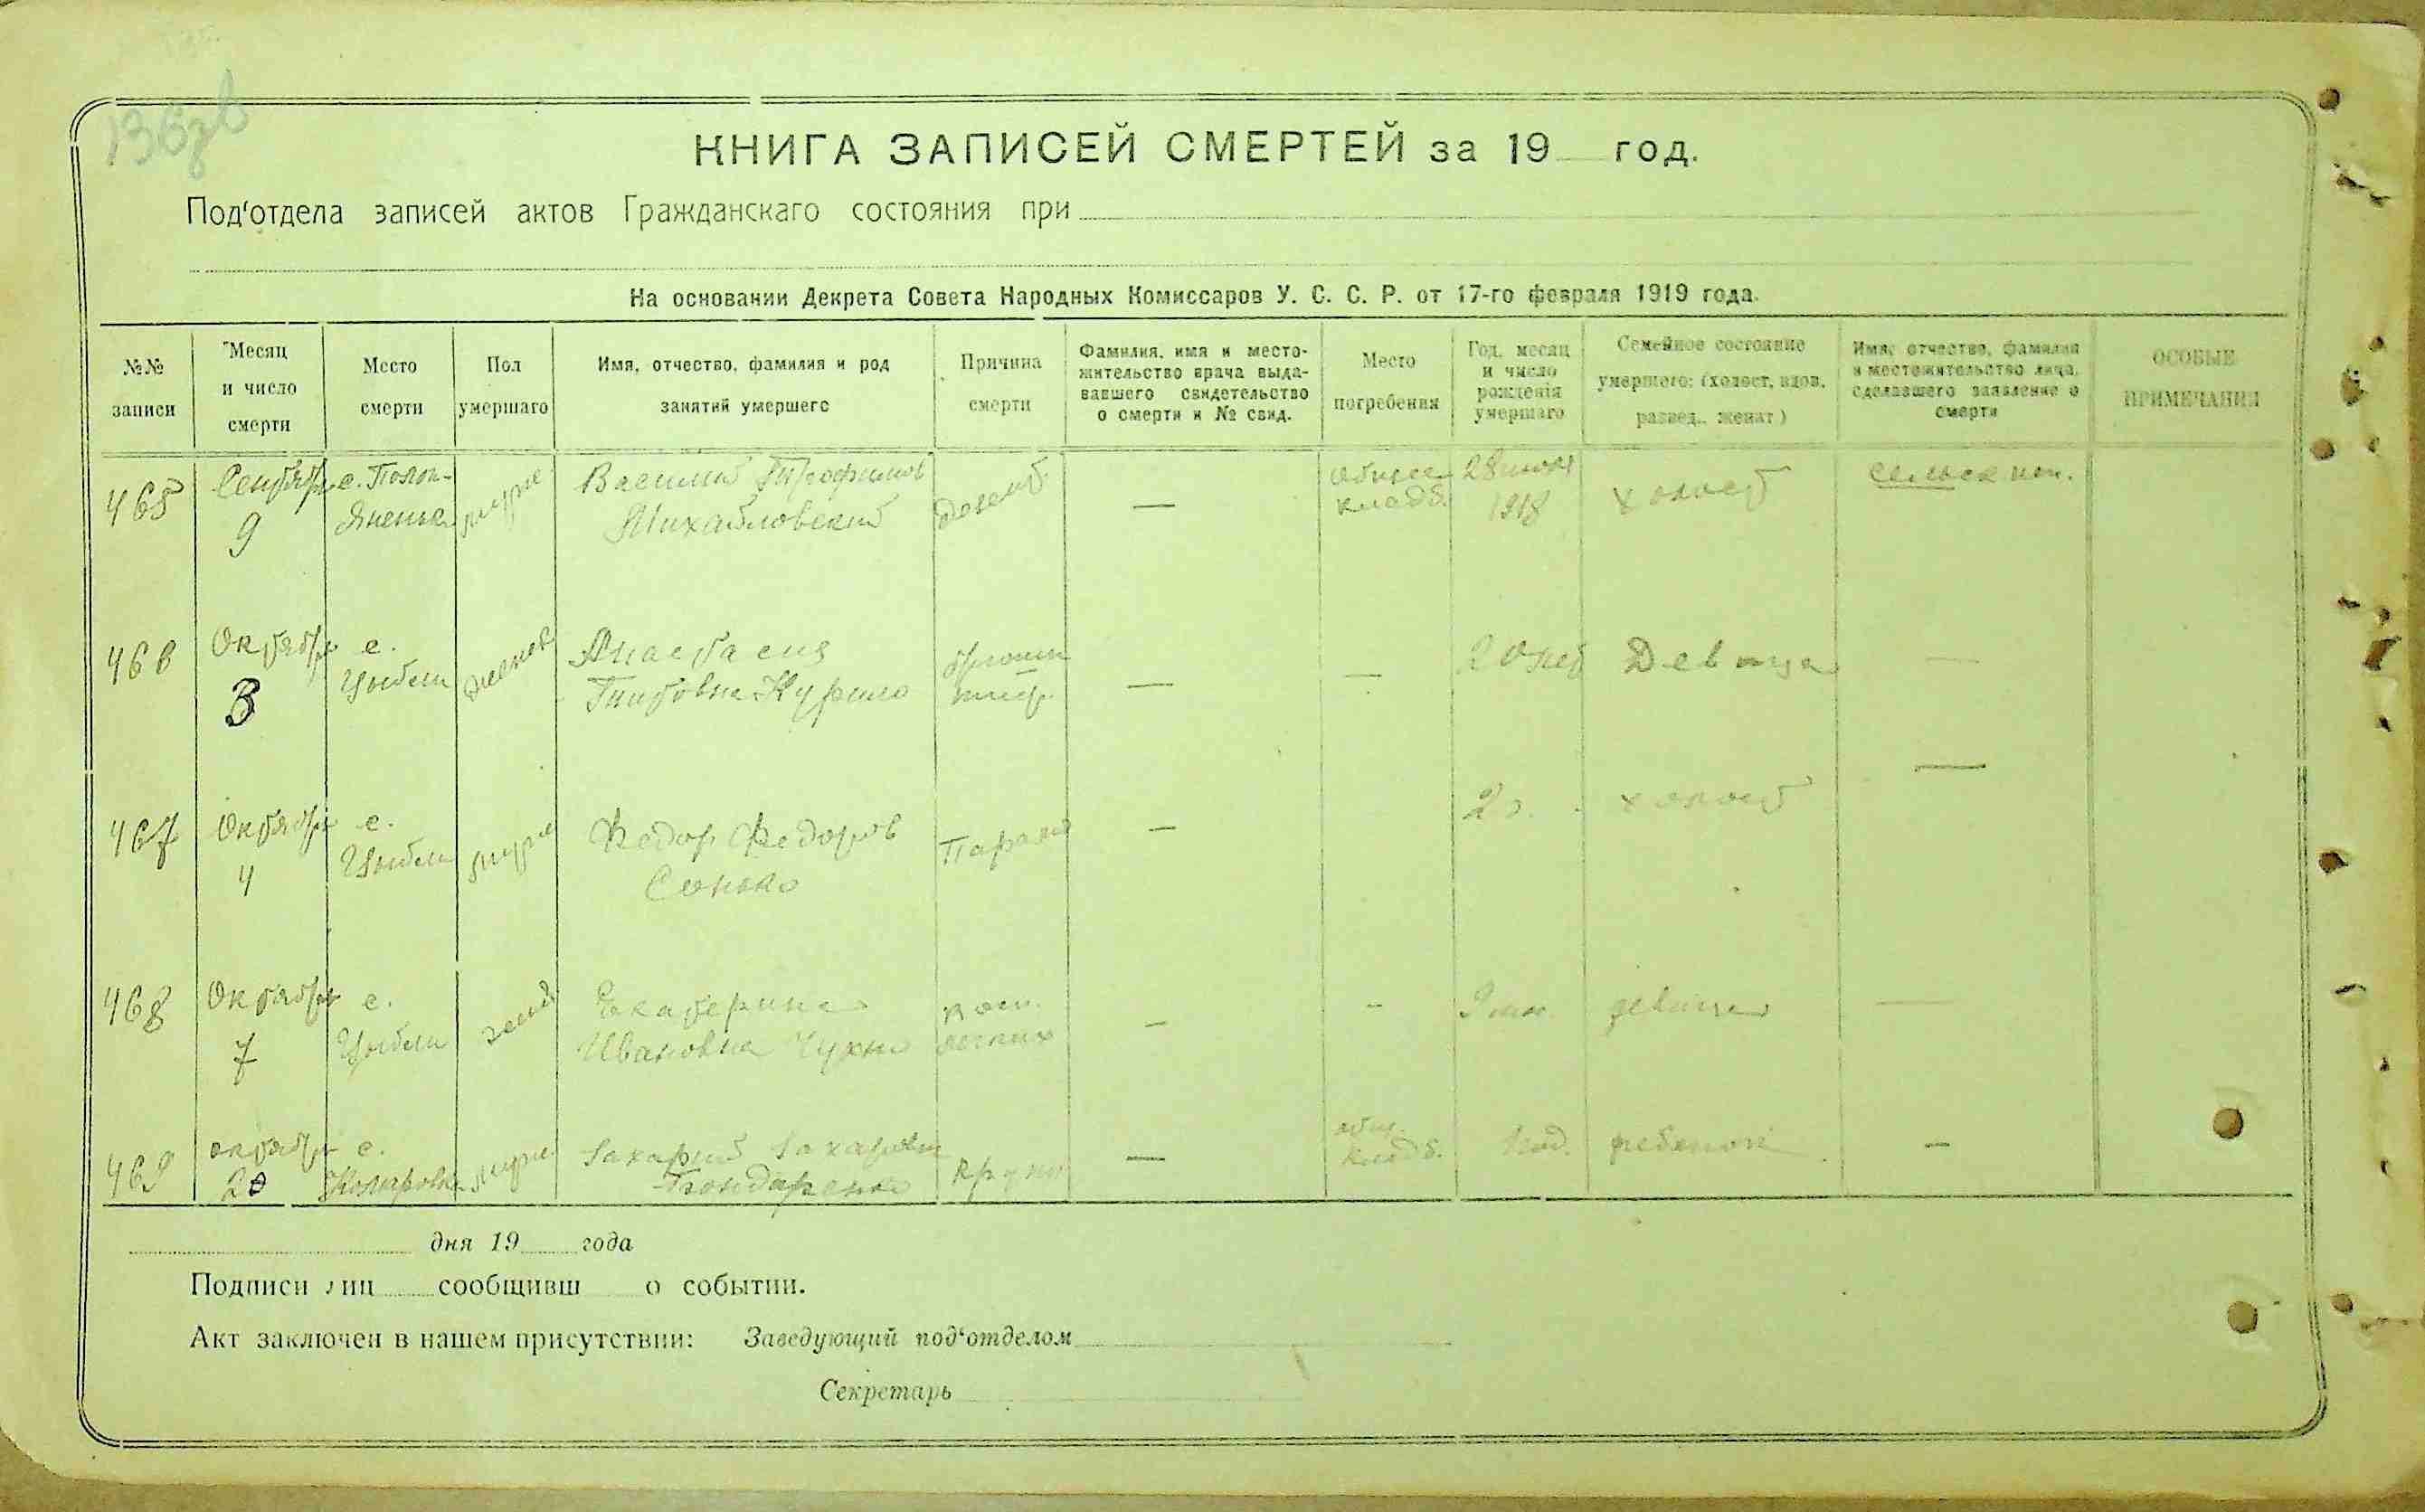 136зв
КНИГА ЗАПИСЕЙ СМЕРТЕЙ за 19 год.
Под'отдела записей актов Гражданскаго состояния при
На основании Декрета Совета Народных Комиссаров У. С. С. Р. от 17-го февраля 1919 года.
№№ записи
Месяц и число смерти
Место смерти
Пол умершаго
Имя, отчество, фамилия и род занятий умершего
Причина смерти
Фамилия, имя и место-
жительство врача выда-
вавшего свидетельство
о смерти и № свид.
Место погребения
Год, месяц
и число
рождения
умершаго
Семейное состояние
умершего: (холост, вдов,
развед., женат)
Имя, отчество, фамилия
и местожительство лица,
сделавшего заявление о
смерти
ОСОБЫЕ
ПРИМЕЧАНИЯ
465 Сентябр с. Полож- муж Василий Трофимов дезент. — общее 28 июля холост сельск.
9 Яненьк Михайловский кладб. 1918
466 Октябр с. женск Анастасия брюшн — — 20 лет Девица —
3 Цыбли Титовна Курило тиф.
467 Октябр с. муж Федор Федоров — 2 г. холост —
4 Цыбли Сенько
468 Октябр с. женс Екатерина восп. — - 9 мес девица —
7 Цыбли Ивановна Чухно легких
469 октябр с. муж Захарий Захаров Круп — общ. 1 год. ребенок —
20 Комаровка Бондаренко кладб.
дня 19 года
Подписи лиц сообщивш о событии.
Акт заключен в нашем присутствии: Заведующий под'отделом
Секретарь